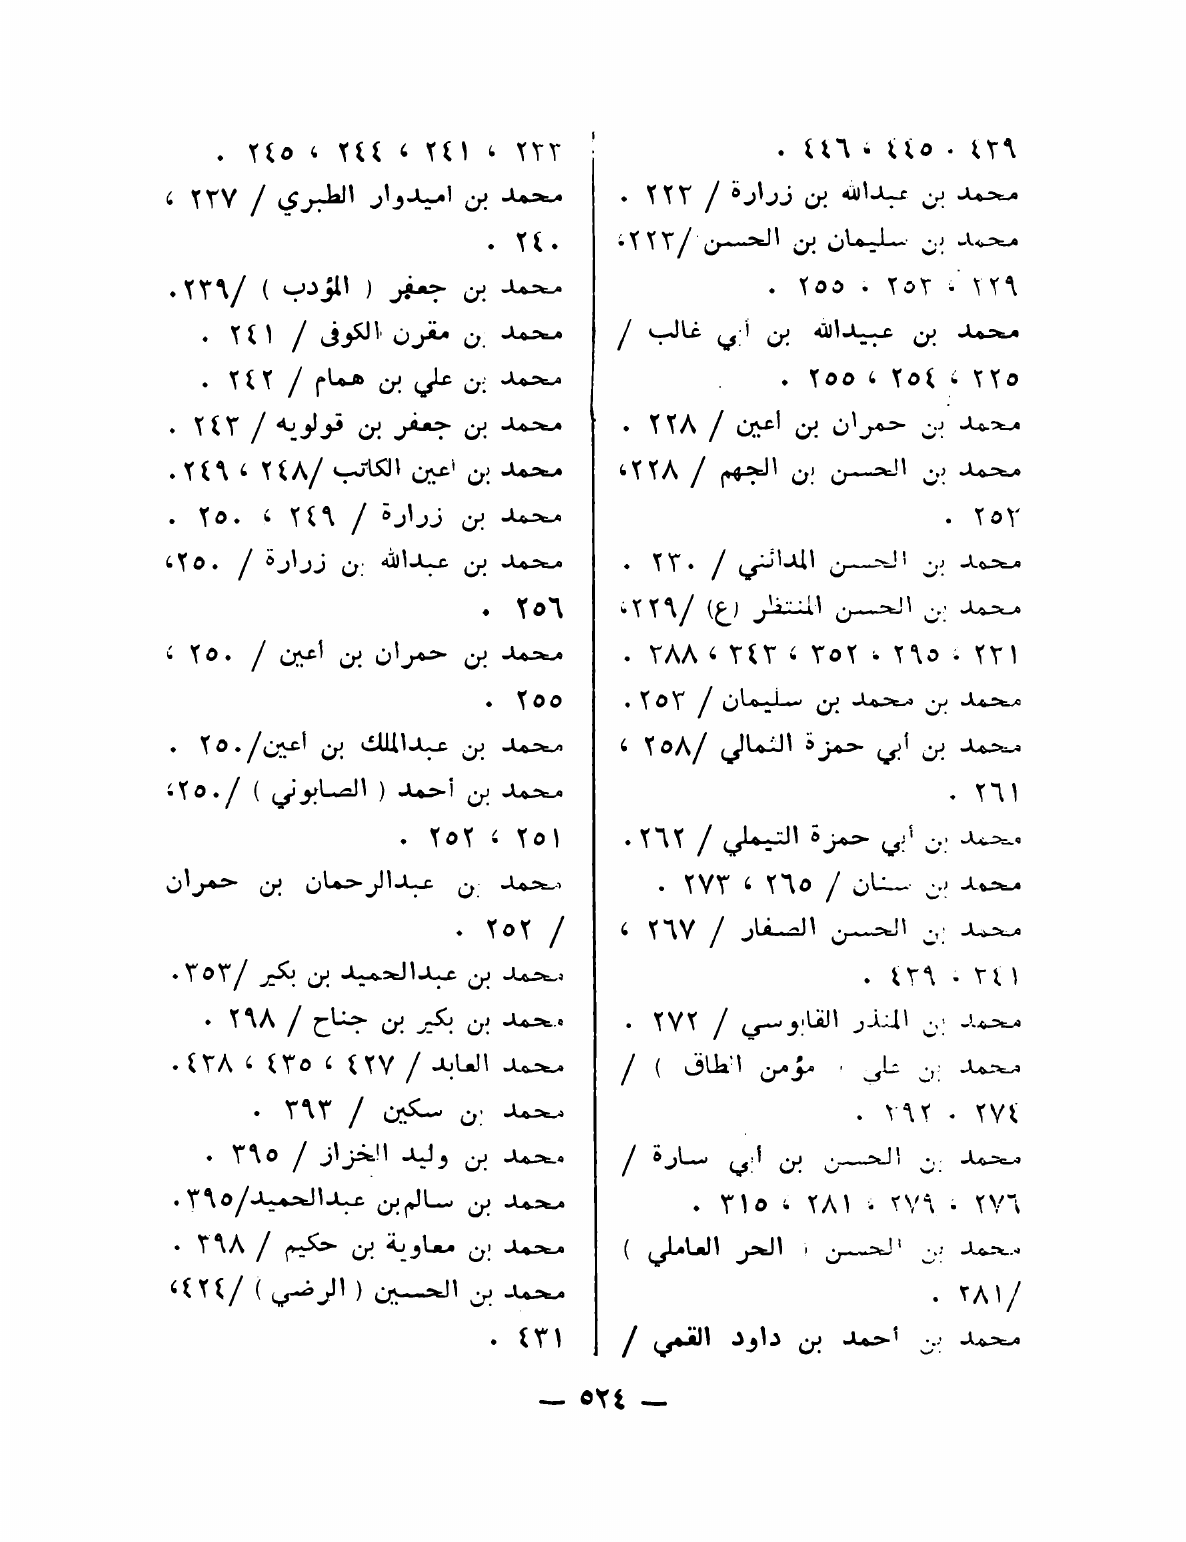 ٤٣٩ ، ٤٤٥ ، ٤٤٦ .
محمد بن عبدالله بن زرارة / ٢٢٣ .
محمد بن سليمان بن الحسن /٢٢٣،
٢٢٩ ، ٢٥٣ ، ٢٥٥ .
محمد بن عبيدالله بن أبي غالب /
٢٢٥ ، ٢٥٤ ، ٢٥٥ .
محمد بن حمران بن أعين / ٢٢٨ .
محمد بن الحسن بن الجهم / ٢٢٨،
٢٥٢ .
محمد بن الحسن المدائني / ٢٣٠ .
محمد بن الحسن المنتظر (ع) /٢٢٩،
٢٣١ ، ٢٩٥ ، ٣٥٢ ، ٣٤٣ ، ٣٨٨ .
محمد بن محمد بن سليمان / ٢٥٣ .
محمد بن أبي حمزة الثمالي /٢٥٨ ،
٢٦١ .
محمد بن أبي حمزة التيملي / ٢٦٢ .
محمد بن سنان / ٢٦٥ ، ٢٧٣ .
محمد بن الحسن الصفار / ٢٦٧ ،
٣٤١ ، ٤٣٩ .
محمد بن المنذر القابوسي / ٢٧٢ .
محمد بن علي ( مؤمن الطاق ) /
٢٧٤ ، ٢٩٢ .
محمد بن الحسن بن أبي سارة /
٢٧٦ ، ٢٧٩ ، ٢٨١ ، ٣١٥ .
محمد بن الحسن ( الحر العاملي )
/٢٨١ .
محمد بن أحمد بن داود القمي /
٢٣٣ ، ٢٤١ ، ٢٤٤ ، ٢٤٥ .
محمد بن اميدوار الطبري / ٢٣٧ ،
٢٤٠ .
محمد بن جعفر ( المؤدب ) /٢٣٩ .
محمد بن مقرن الكوفى / ٢٤١ .
محمد بن علي بن همام / ٢٤٢ .
محمد بن جعفر بن قولويه / ٢٤٣ .
محمد بن اعين الكاتب /٢٤٨ ، ٢٤٩ .
محمد بن زرارة / ٢٤٩ ، ٢٥٠ .
محمد بن عبدالله بن زرارة / ٢٥٠،
٢٥٦ .
محمد بن حمران بن أعين / ٢٥٠ ،
٢٥٥ .
محمد بن عبدالملك بن أعين/٢٥٠ .
محمد بن أحمد ( الصابوني ) /٢٥٠،
٢٥١ ، ٢٥٢ .
محمد بن عبدالرحمان بن حمران
/ ٢٥٢ .
محمد بن عبدالحميد بن بكير /٣٥٣ .
محمد بن بكير بن جناح / ٢٩٨ .
محمد العابد / ٤٢٧ ، ٤٣٥ ، ٤٣٨ .
محمد بن سكين / ٣٩٣ .
محمد بن وليد الخزاز / ٣٩٥ .
محمد بن سالم بن عبدالحميد/٣٩٥ .
محمد بن معاوية بن حكيم / ٣٩٨ .
محمد بن الحسين ( الرضي ) /٤٢٤،
٤٣١ .
— ٥٢٤ —